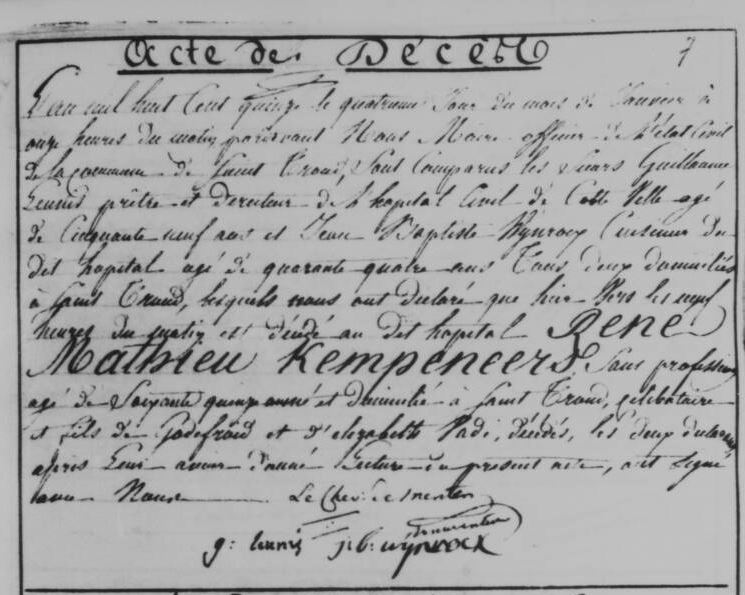 Acte de Décès
7
L'an mil huit Cent quinze le quatrieme Jour du mois de Janvier à
onze heures du matin pardevant Nous Maire officier de l'état Civil
de la Commune de Saint Trond, Sont Comparus les Sieurs Guillaume
Leunis prêtre et directeur de l'hopital Civil de Cette Ville agé
de Cinquante neuf ans et Jean Baptiste Wynrocx Cuisinier du
dit hopital agé de quarante quatre ans Tous deux domiciliés
à Saint Trond, lesquels nous ont declaré que hier Vers les neuf
heures du matin est décédé au dit hopital René
Mathieu Kempeneers, Sans profession
agé de Soixante quinze année et domicilié à Saint Trond, Celibataire
et fils de Godefroid et d'elizabeth Vadi, décédés, les deux declarans
après Leur avoir donné Lecture du present acte, ont signé
avec Nous Le Chev.
g: leunis j: b: wijnrocx